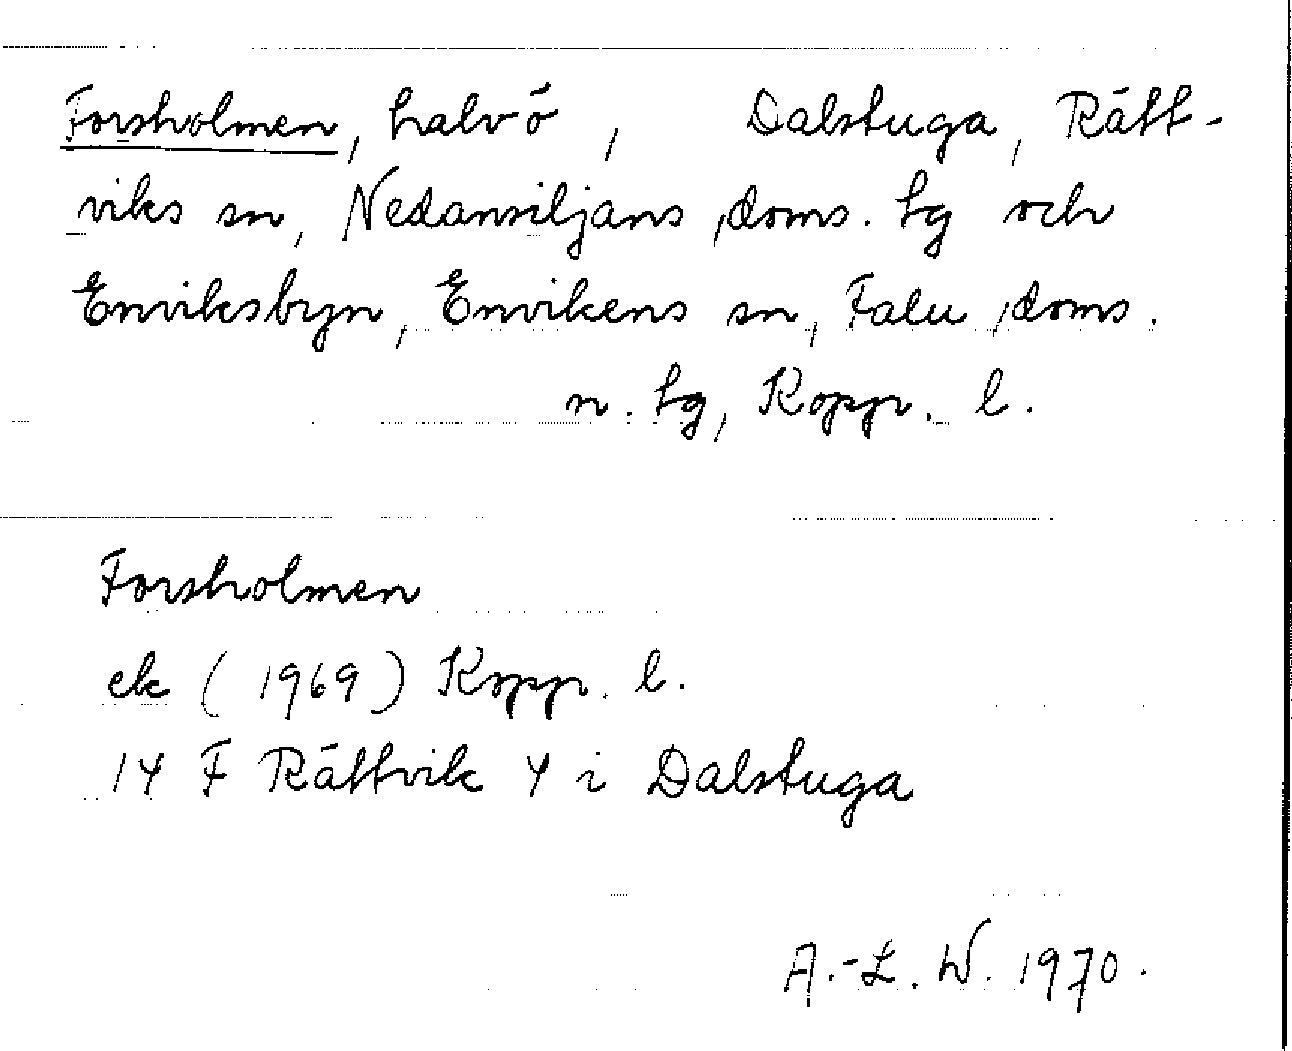 Forsholmen, halvö, Dalstuga, Rätt-
viks sn, Nedansiljans doms. tg och
Enviksbyn, Envikens sn, Falu doms.
n. tg, Kopp. l.
Forsholmen
ek (1969) Kopp. l.
14 F Rättvik 4 i Dalstuga
A.-L. W. 1970.